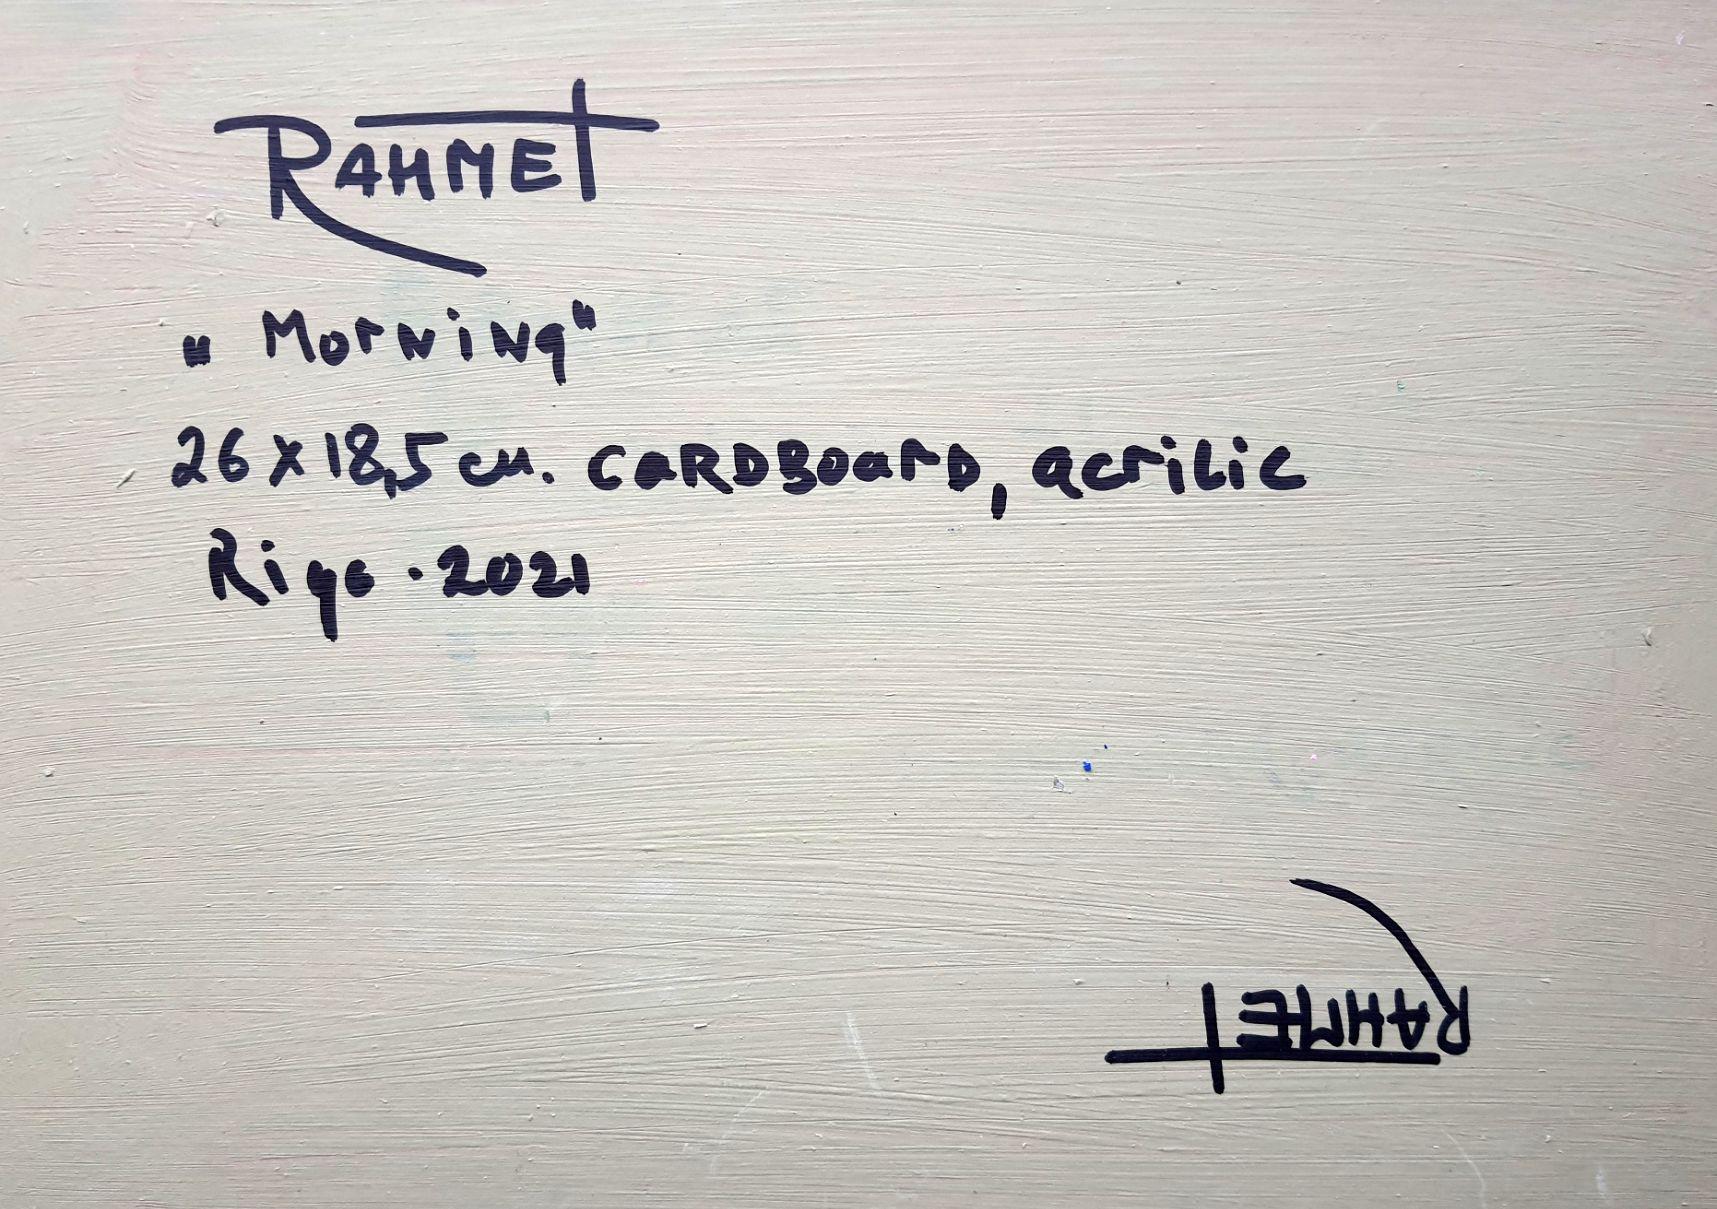 RAHMET
„Morning“
26 x 18,5 cm. CARDBOARD, acrilic
Riga · 2021
RAHMET